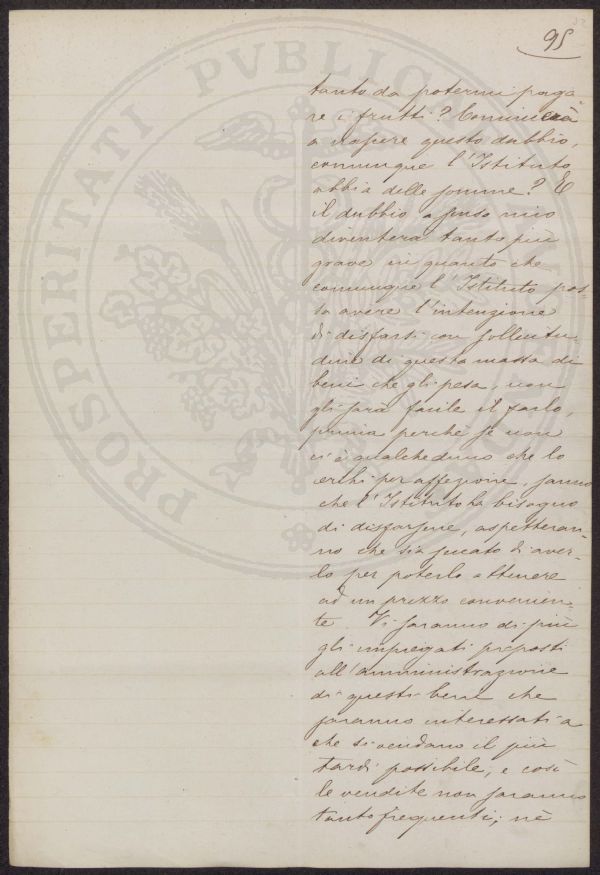 95
PROSPERITATI PVBLIC
tanto da potermi paga
re i frutti? Comincerà
a sapere questo dubbio,
comunque l'Istituto
abbia delle somme? E
il dubbio a senso mio
diventerà tanto più
grave in quanto che
comunque l'Istituto pos-
sa avere l'intenzione
di disfarsi con sollecitu-
dine di questa massa di
beni che gli pesa, non
gli sarà facile il farlo,
prima perchè se non
vi è qualcheduno che lo
cerchi per affezione, sanno
che l'Istituto ha bisogno
di disfarsene, aspetteran-
no che sia seccato di aver-
lo per poterlo ottenere
ad un prezzo convenien-
te. Vi saranno di più
gli impiegati preposti
all'amministrazione
di questi beni che
saranno interessati a
che si vendano il più
tardi possibile, e così
le vendite non saranno
tanto frequenti; nè